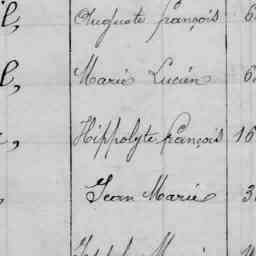 Auguste françois
Marie Lucien
Hippolyte françois 16
Jean Marie